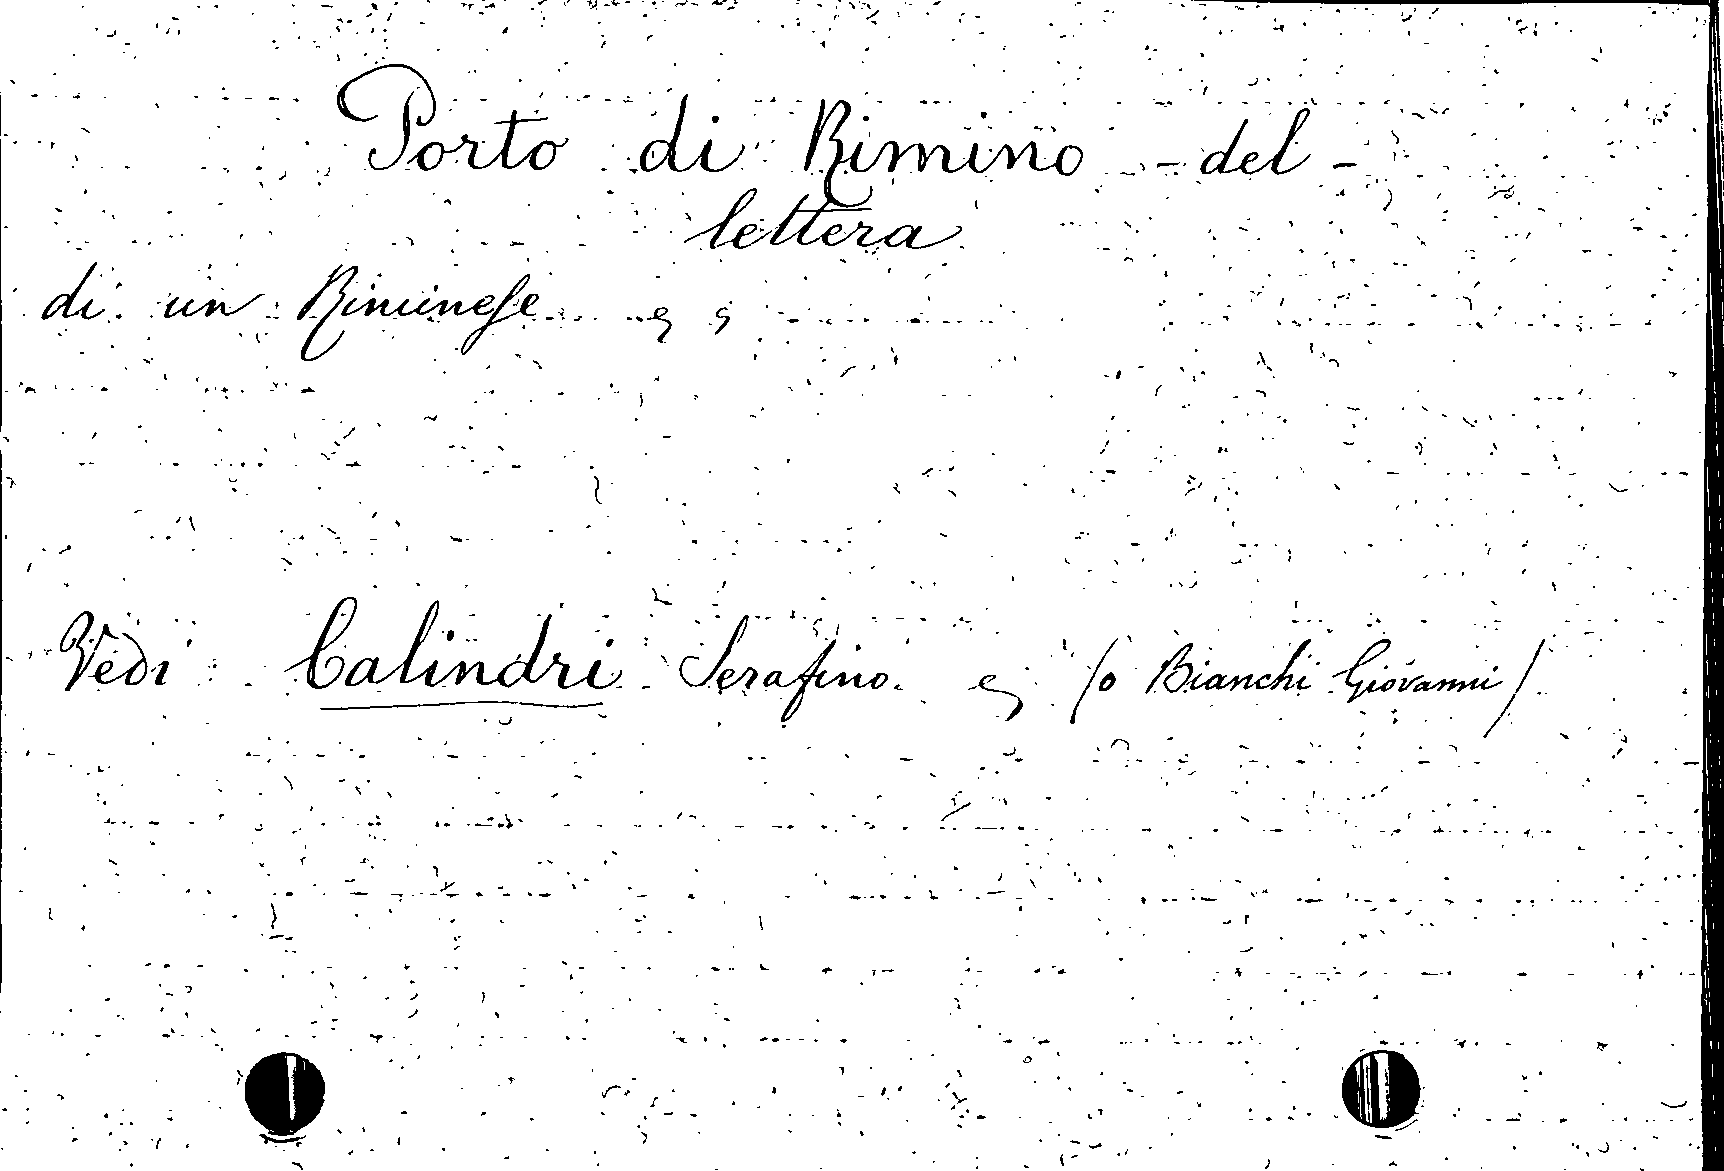 Porto di Rimino - del -
lettera
di un Riminese
Vedi Calindri Serafino. (o Bianchi Giovanni)